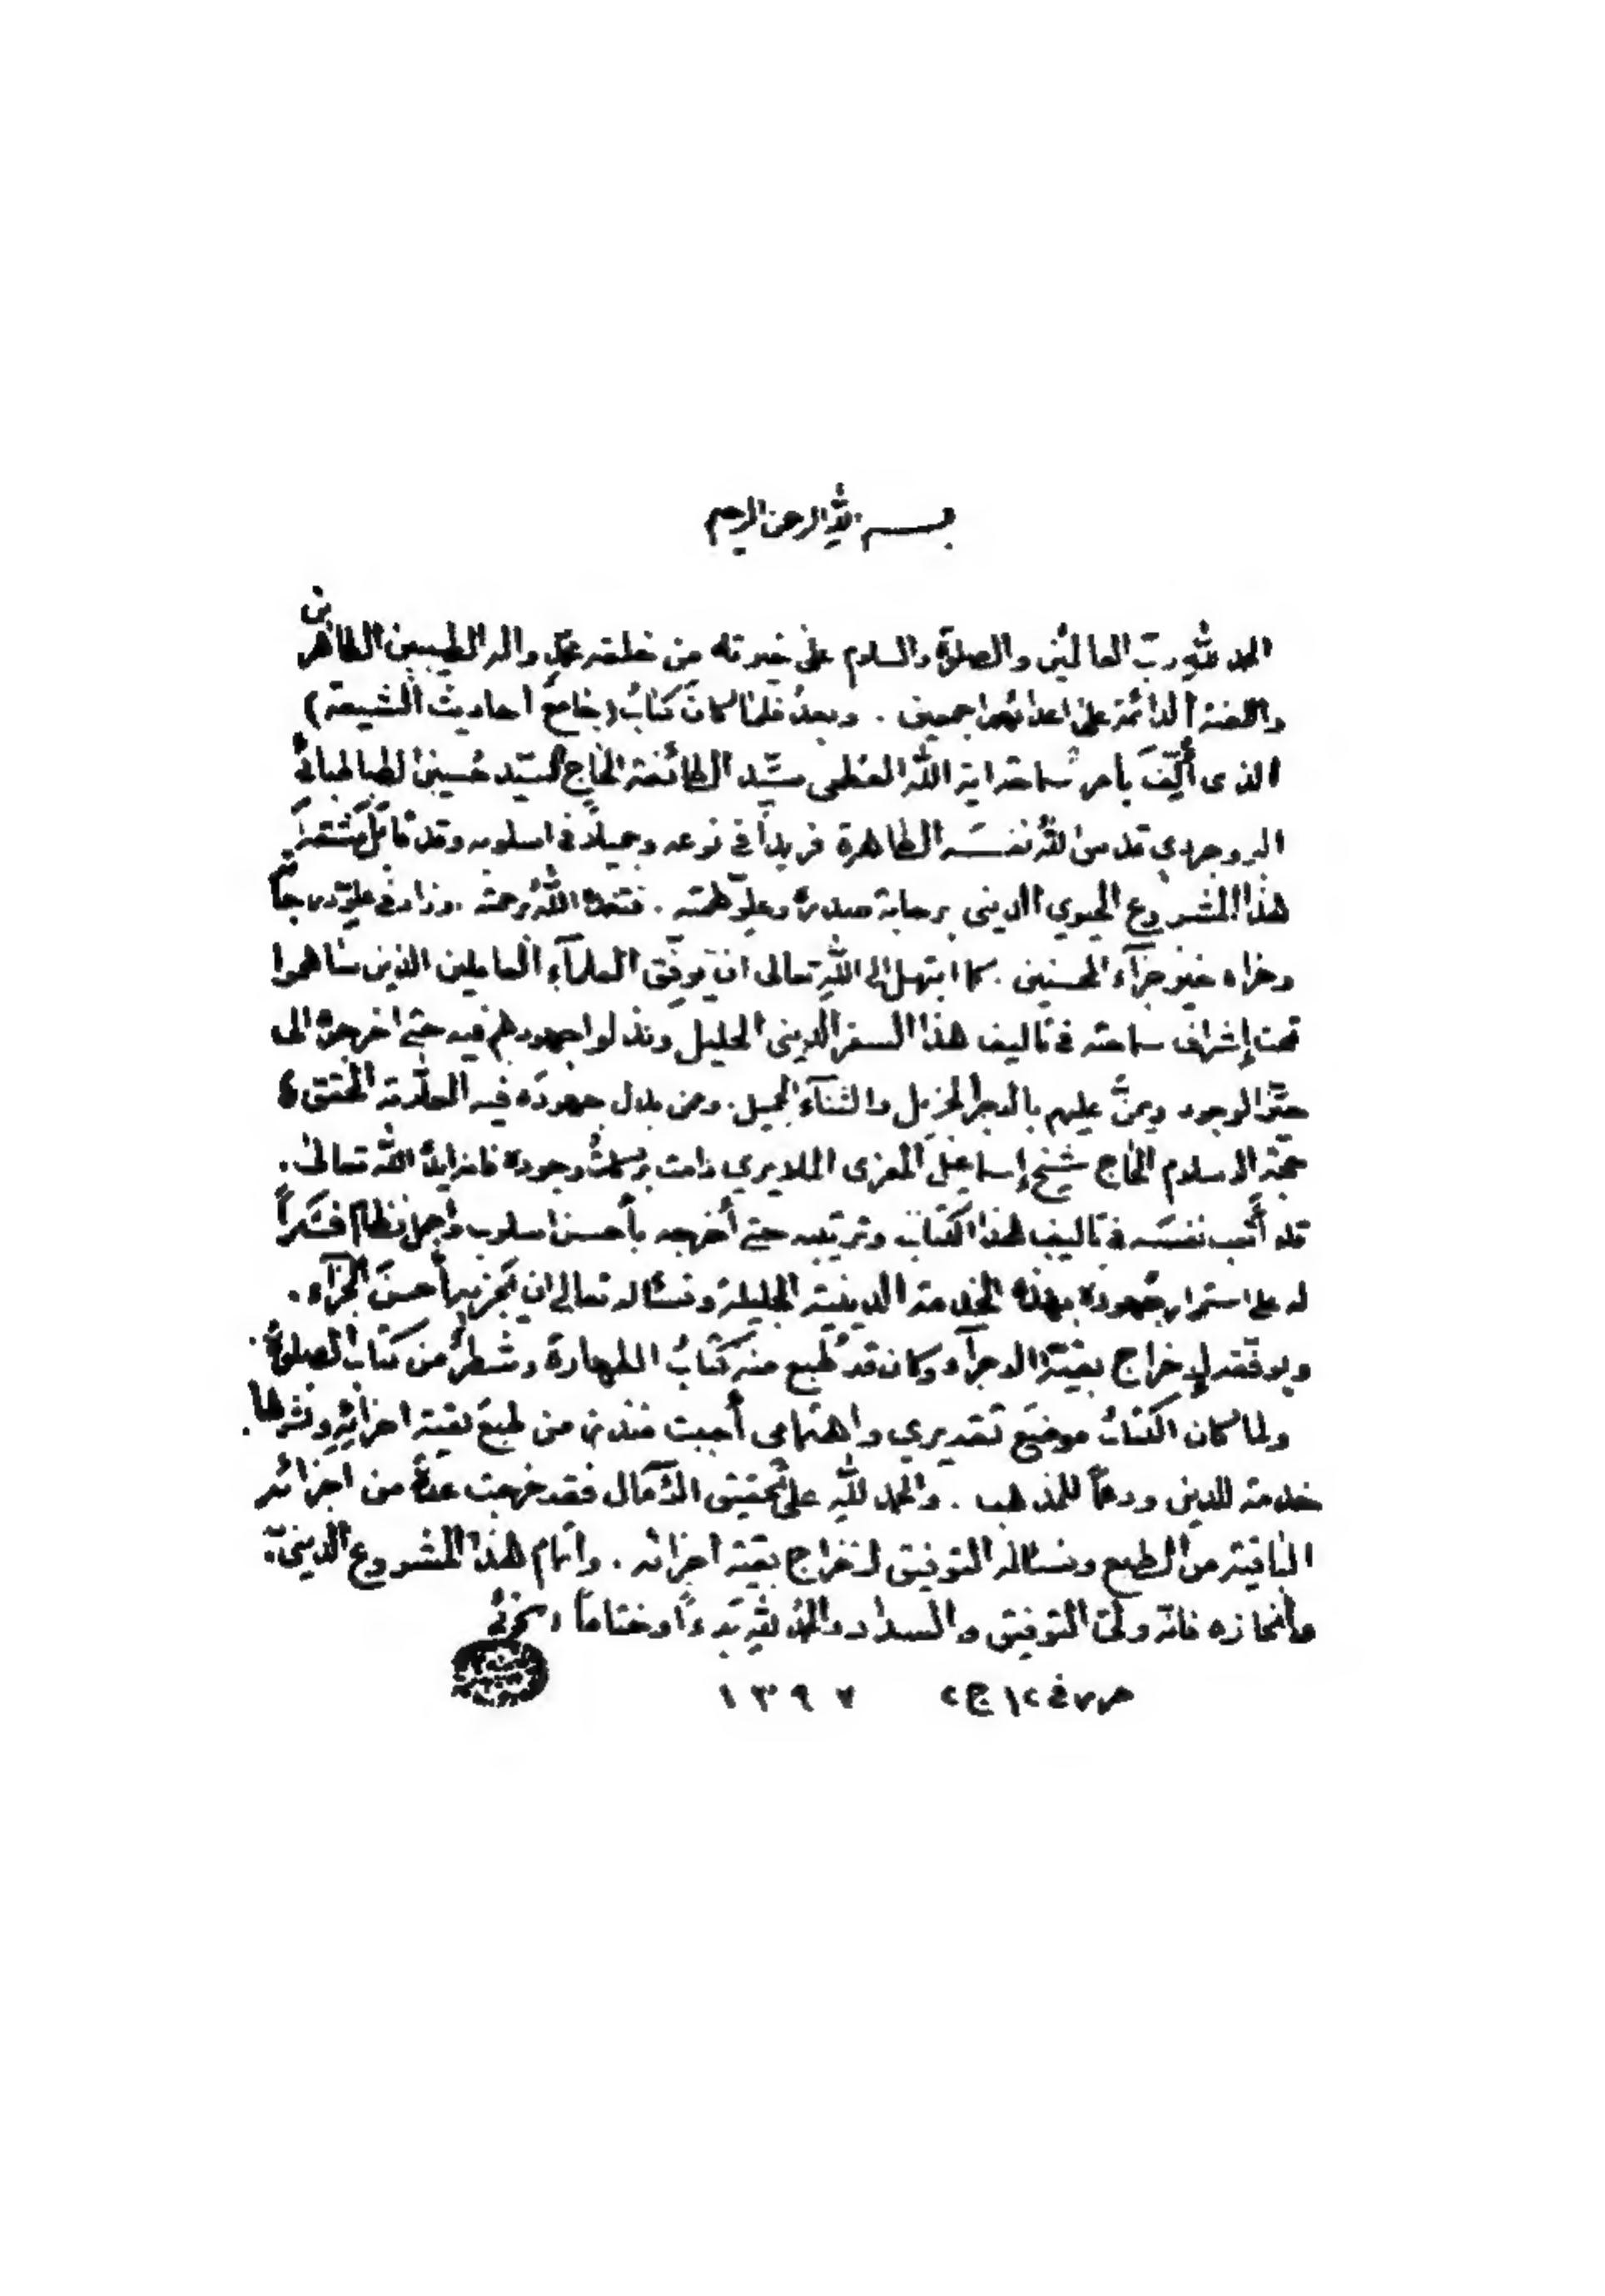 بسم الله الرحمن الرحيم
الحمد لله رب العالمين والصلاة والسلام على خيرته من خلقه محمد واله الطيبين الطاهرين
واللعنة الدائمة على اعدائهم اجمعين . وبعد فلما كان كتاب (جامع احاديث الشيعة)
الذى أُلِّفَ بأمر سماحة اية الله العظمى سيّد الطائفة الحاج السيّد حسين الطباطبائي
البروجردي قدس الله نفسه الطاهرة فريداً في نوعه وجميلاً في اسلوبه وقد قابل
هذا المشروع الحيوي الديني برحابة صدره وعلوّ همّته . فتغمده الله برحمته .وزاد في علوّ درجاته
وجزاه خير جزآء المحسنين . كما ابتهل الى الله تعالى ان يوفق العلمآء العاملين الذين ساهموا
تحت إشراف سماحته في تاليف هذا السفر الديني الجليل وبذلوا جهودهم فيه حتى اخرجوه الى
حيّز الوجود ويمنّ عليهم بالاجر الجزيل والثنآء الجميل. وممن بذل جهوده فيه العلّامة المحقق
حجة الاسلام الحاج شيخ إسماعيل المعزى الملايري دامت بركات وجوده فانه ايده الله تعالى.
قد أتعب نفسه في تاليف هذا الكتاب وترتيبه حتى أخرجه بأحسن اسلوب واجمل نظام فشكراً
له على استمرار جهوده بهذه الخدمة الدينية الجليلة ونسأله تعالى ان يجزيه أحسن الجزآء .
ويوفقه لإخراج بقية الاجزآء وكان قد طبع منه كتاب الطهارة وشطر من كتاب الصلوة.
ولما كان الكتاب موضع تقديري واهتمامي أحببت من طبع بقية اجزائه ونشرها.
خدمة للدين ودعماً للمذهب . والحمد لله على تحقيق الآمال فقد خرجت عدة من اجزائه
الباقية من الطبع ونسأله التوفيق لاخراج بقية اجزائه . واتمام هذا المشروع الديني.
وانجازه فانه ولى التوفيق والسداد والحمد لله بدءاً وختاماً
في ١٢ ج٢ ١٣٩٧